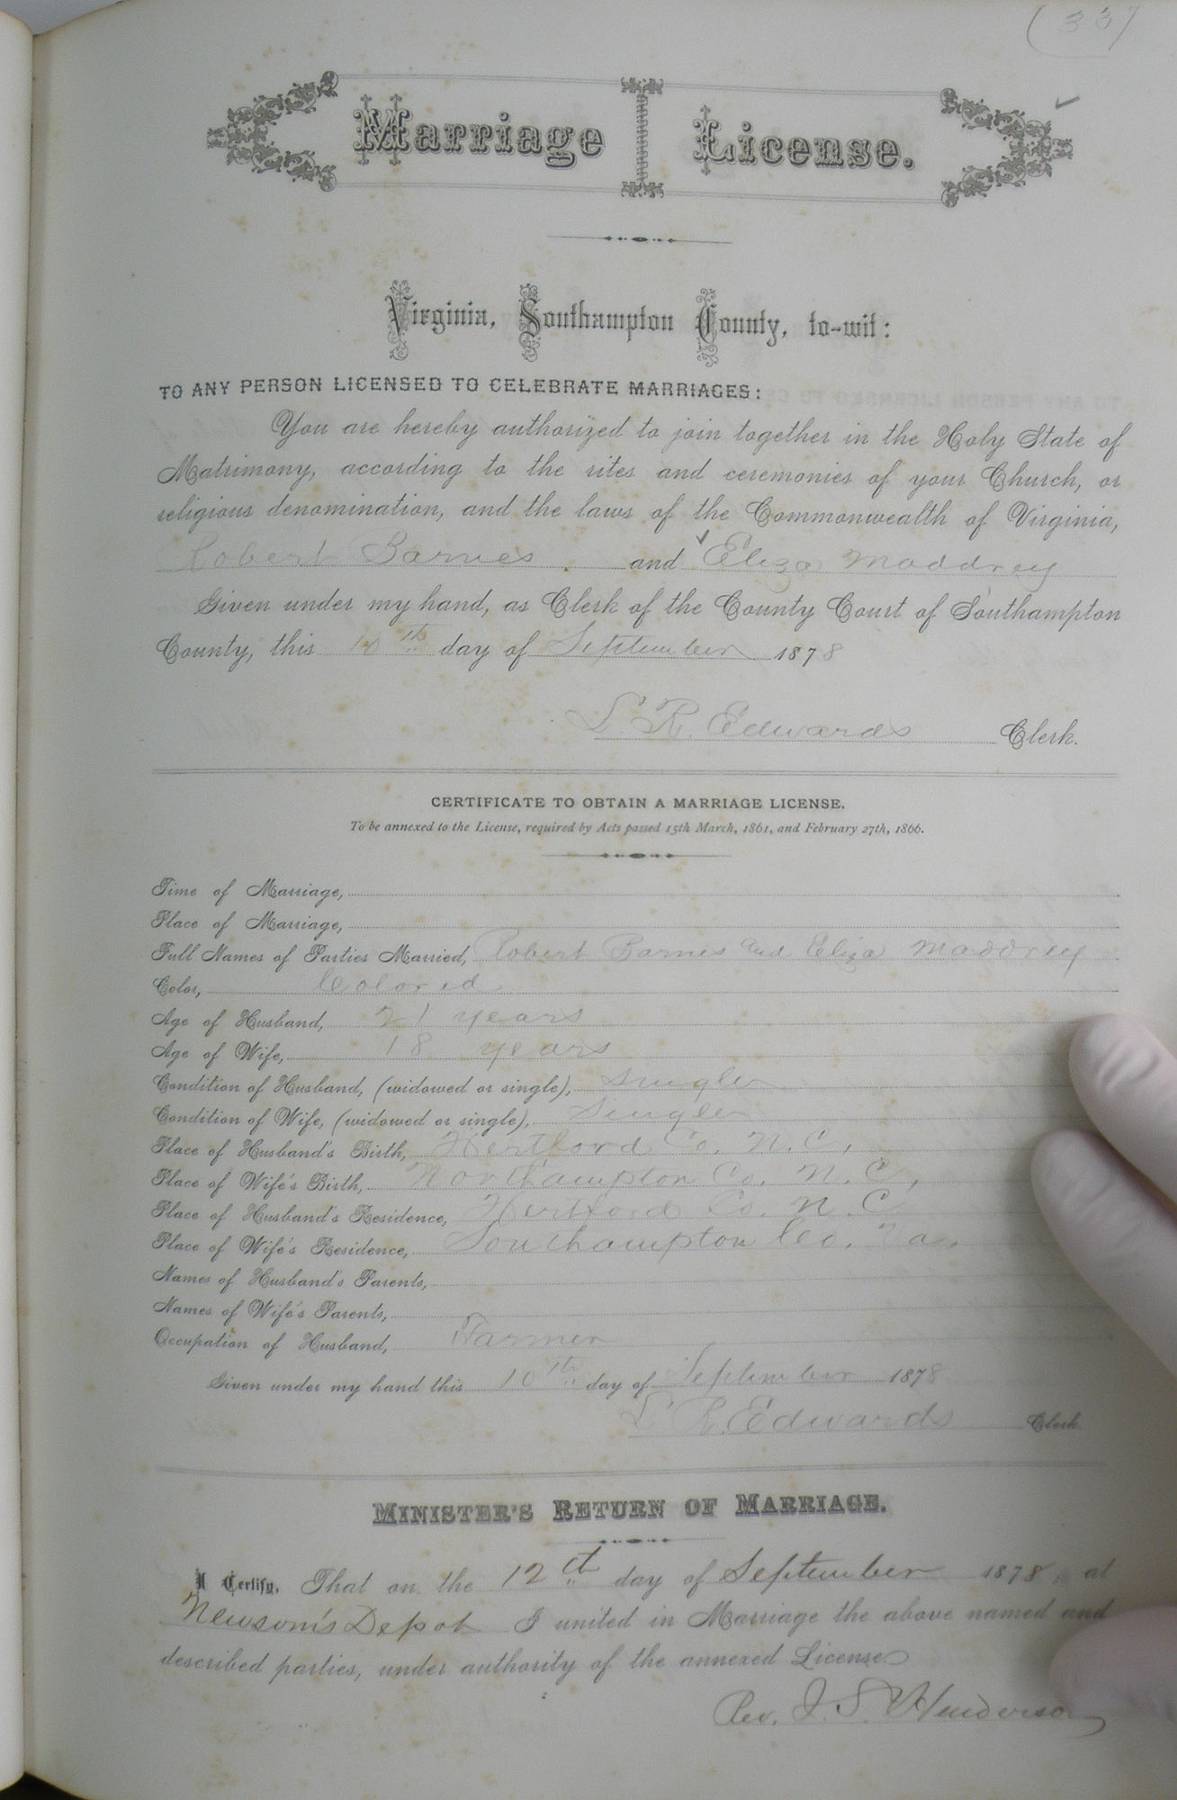 (337
Marriage License.
Virginia, Southampton County, to-wit:
TO ANY PERSON LICENSED TO CELEBRATE MARRIAGES:
You are hereby authorized to join together in the Holy State of
Matrimony, according to the rites and ceremonies of your Church, or
religious denomination, and the laws of the Commonwealth of Virginia,
Robert Barnes and Eliza Maddrey
Given under my hand, as Clerk of the County Court of Southampton
County, this 10th day of September 1878
L. R. Edwards Clerk.
CERTIFICATE TO OBTAIN A MARRIAGE LICENSE.
To be annexed to the License, required by Acts passed 15th March, 1861, and February 27th, 1866.
Time of Marriage,
Place of Marriage,
Full Names of Parties Married, Robert Barnes and Eliza Maddrey
Color, Colored
Age of Husband, 21 years
Age of Wife, 18 years
Condition of Husband, (widowed or single), Single
Condition of Wife, (widowed or single), Single
Place of Husband's Birth, Hertford Co. N.C.
Place of Wife's Birth, Northampton Co. N.C.
Place of Husband's Residence, Hertford Co. N.C
Place of Wife's Residence, Southampton Co. Va.
Names of Husband's Parents,
Names of Wife's Parents,
Occupation of Husband, Farmer
Given under my hand this 10th day of September 1878
L. R. Edwards Clerk
MINISTER'S RETURN OF MARRIAGE.
I Certify, That on the 12ct day of September 1878, at
Newsom's Depot I united in Marriage the above named and
described parties, under authority of the annexed License
Rev. J. S. Henderson